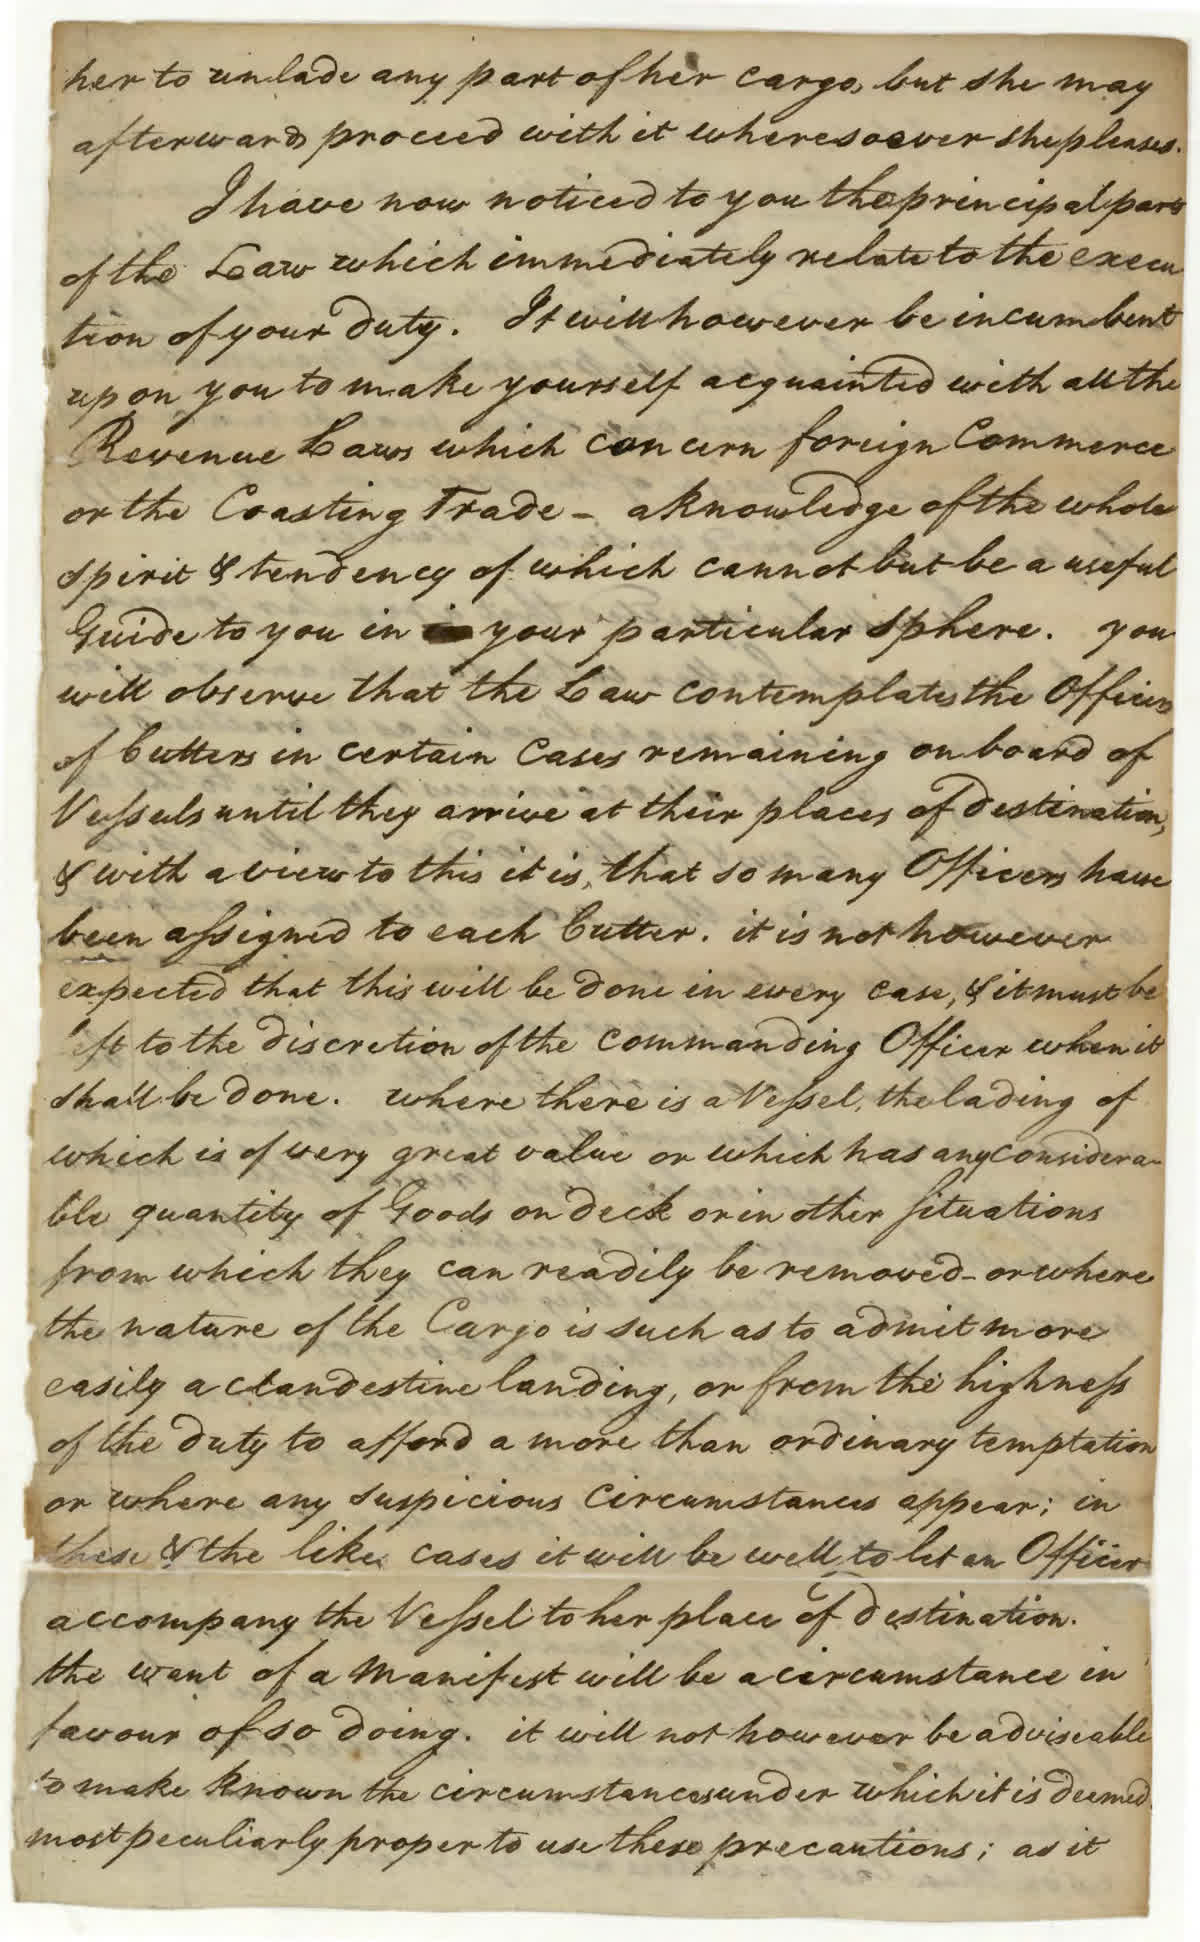 her to unlade any part of her cargo, but she may
afterwards proceed with it wheresoever she pleases.
I have now noticed to you the principal parts
of the Law which immediately relate to the execu
tion of your duty. It will however be incumbent
upon you to make yourself acquainted with all the
Revenue Laws which concern foreign Commerce
or the Coasting Trade - a knowledge of the whole
spirit & tendency of which cannot but be a useful
Guide to you in your particular sphere. you
will observe that the Law contemplates the Officers
of Cutters in certain Cases remaining on board of
Vessels until they arrive at their places of destination,
& with a view to this it is, that so many Officers have
been assigned to each Cutter. it is not however
expected that this will be done in every case, & it must be
left to the discretion of the commanding Officer when it
shall be done. where there is a Vessel, the lading of
which is of very great value or which has any considera-
ble quantity of Goods on deck or in other situations
from which they can readily be removed - or where
the nature of the Cargo is such as to admit more
easily a clandestine landing, or from the highness
of the duty to afford a more than ordinary temptation
or where any suspicious circumstances appear; in
these & the like cases it will be well to let an Officer
accompany the Vessel to her place of destination.
the want of a Manifest will be a circumstance in
favour of so doing. it will not however be adviseable
to make known the circumstances under which it is deemed
most peculiarly proper to use these precautions; as it